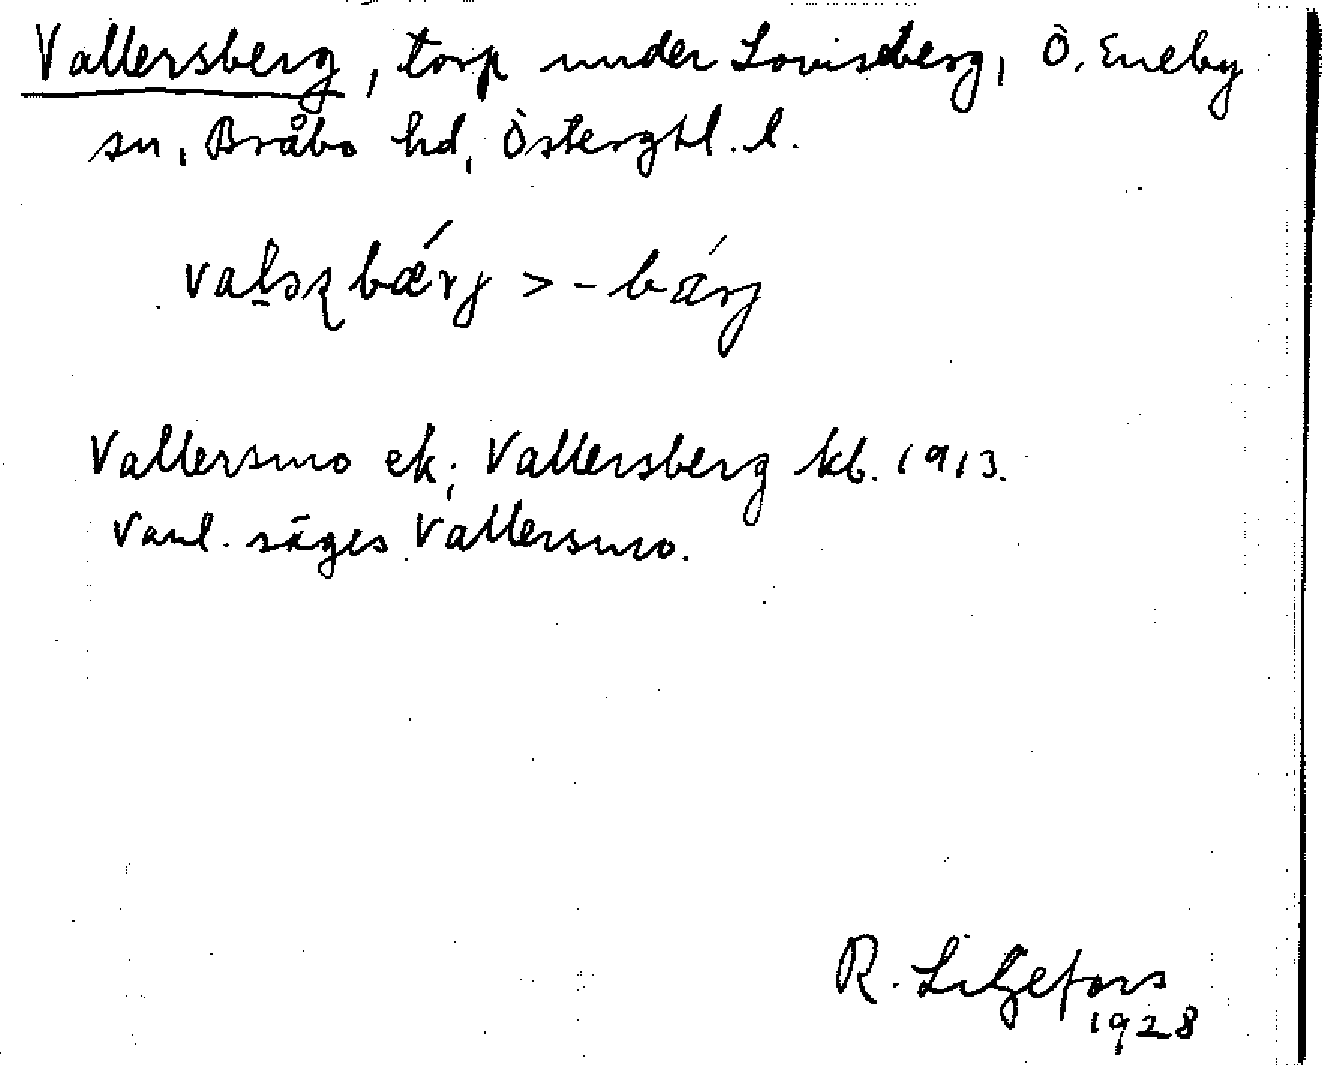 Vallersberg, torp under Loviseberg, Ö. Eneby
sn, Bråbo hd, Östergtl. l.
> -bárj
Vallersmo ek; Vallersberg kb. 1913.
Vanl. säges Vallersmo.
R. Liljefors
1928